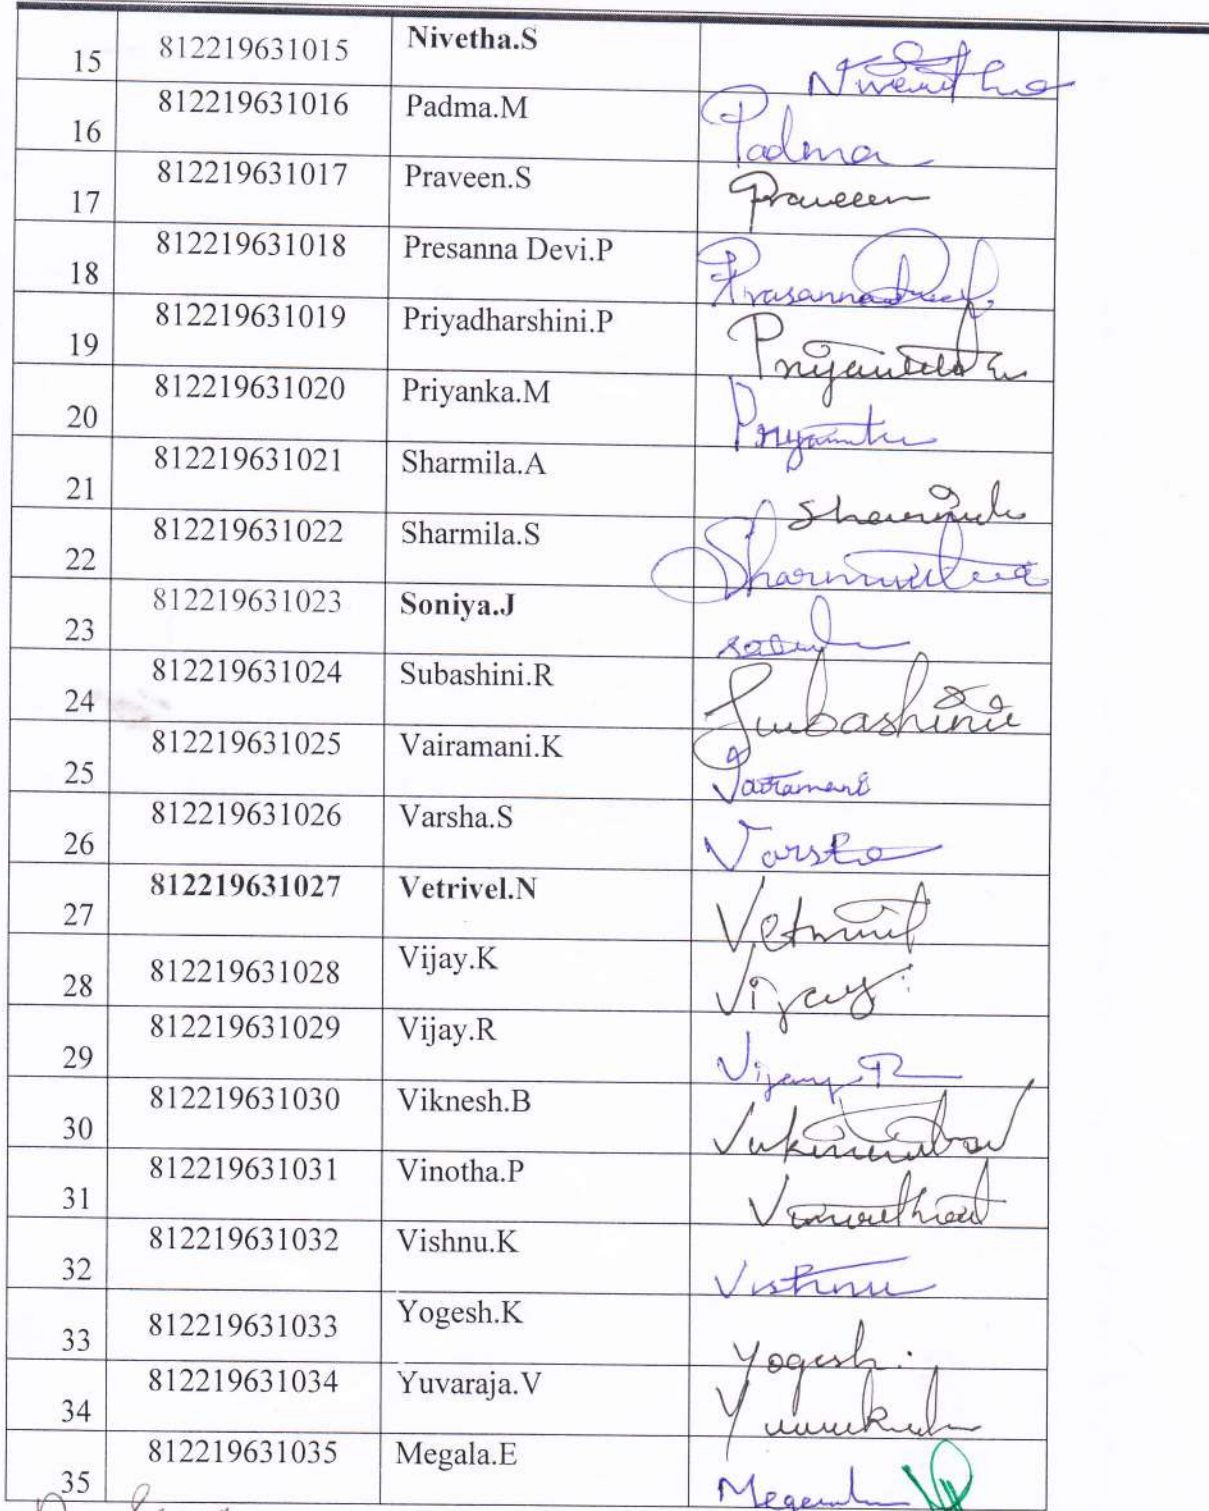 15 812219631015 Nivetha.S Nivetha
16 812219631016 Padma.M Padma
17 812219631017 Praveen.S Praveen
18 812219631018 Presanna Devi.P Prasanna Devi
19 812219631019 Priyadharshini.P
20 812219631020 Priyanka.M
21 812219631021 Sharmila.A
22 812219631022 Sharmila.S
23 812219631023 Soniya.J
24 812219631024 Subashini.R Subashini
25 812219631025 Vairamani.K Vairamani
26 812219631026 Varsha.S Varsha
27 812219631027 Vetrivel.N
28 812219631028 Vijay.K Vijay
29 812219631029 Vijay.R Vijay R
30 812219631030 Viknesh.B
31 812219631031 Vinotha.P
32 812219631032 Vishnu.K Vishnu
33 812219631033 Yogesh.K Yogesh
34 812219631034 Yuvaraja.V
35 812219631035 Megala.E